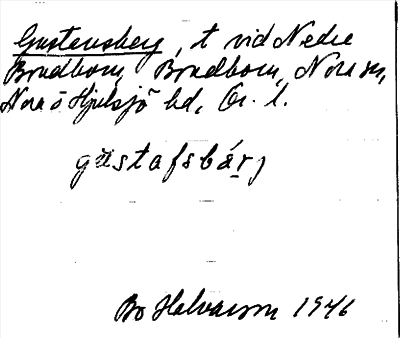 Gustavsberg, t vid Nedre
Bredbom, Bredbom, Nora sn,
Nora o Hjulsjö hd, Ör. l.
gɵstafsbárj
Bo Halvarson 1946